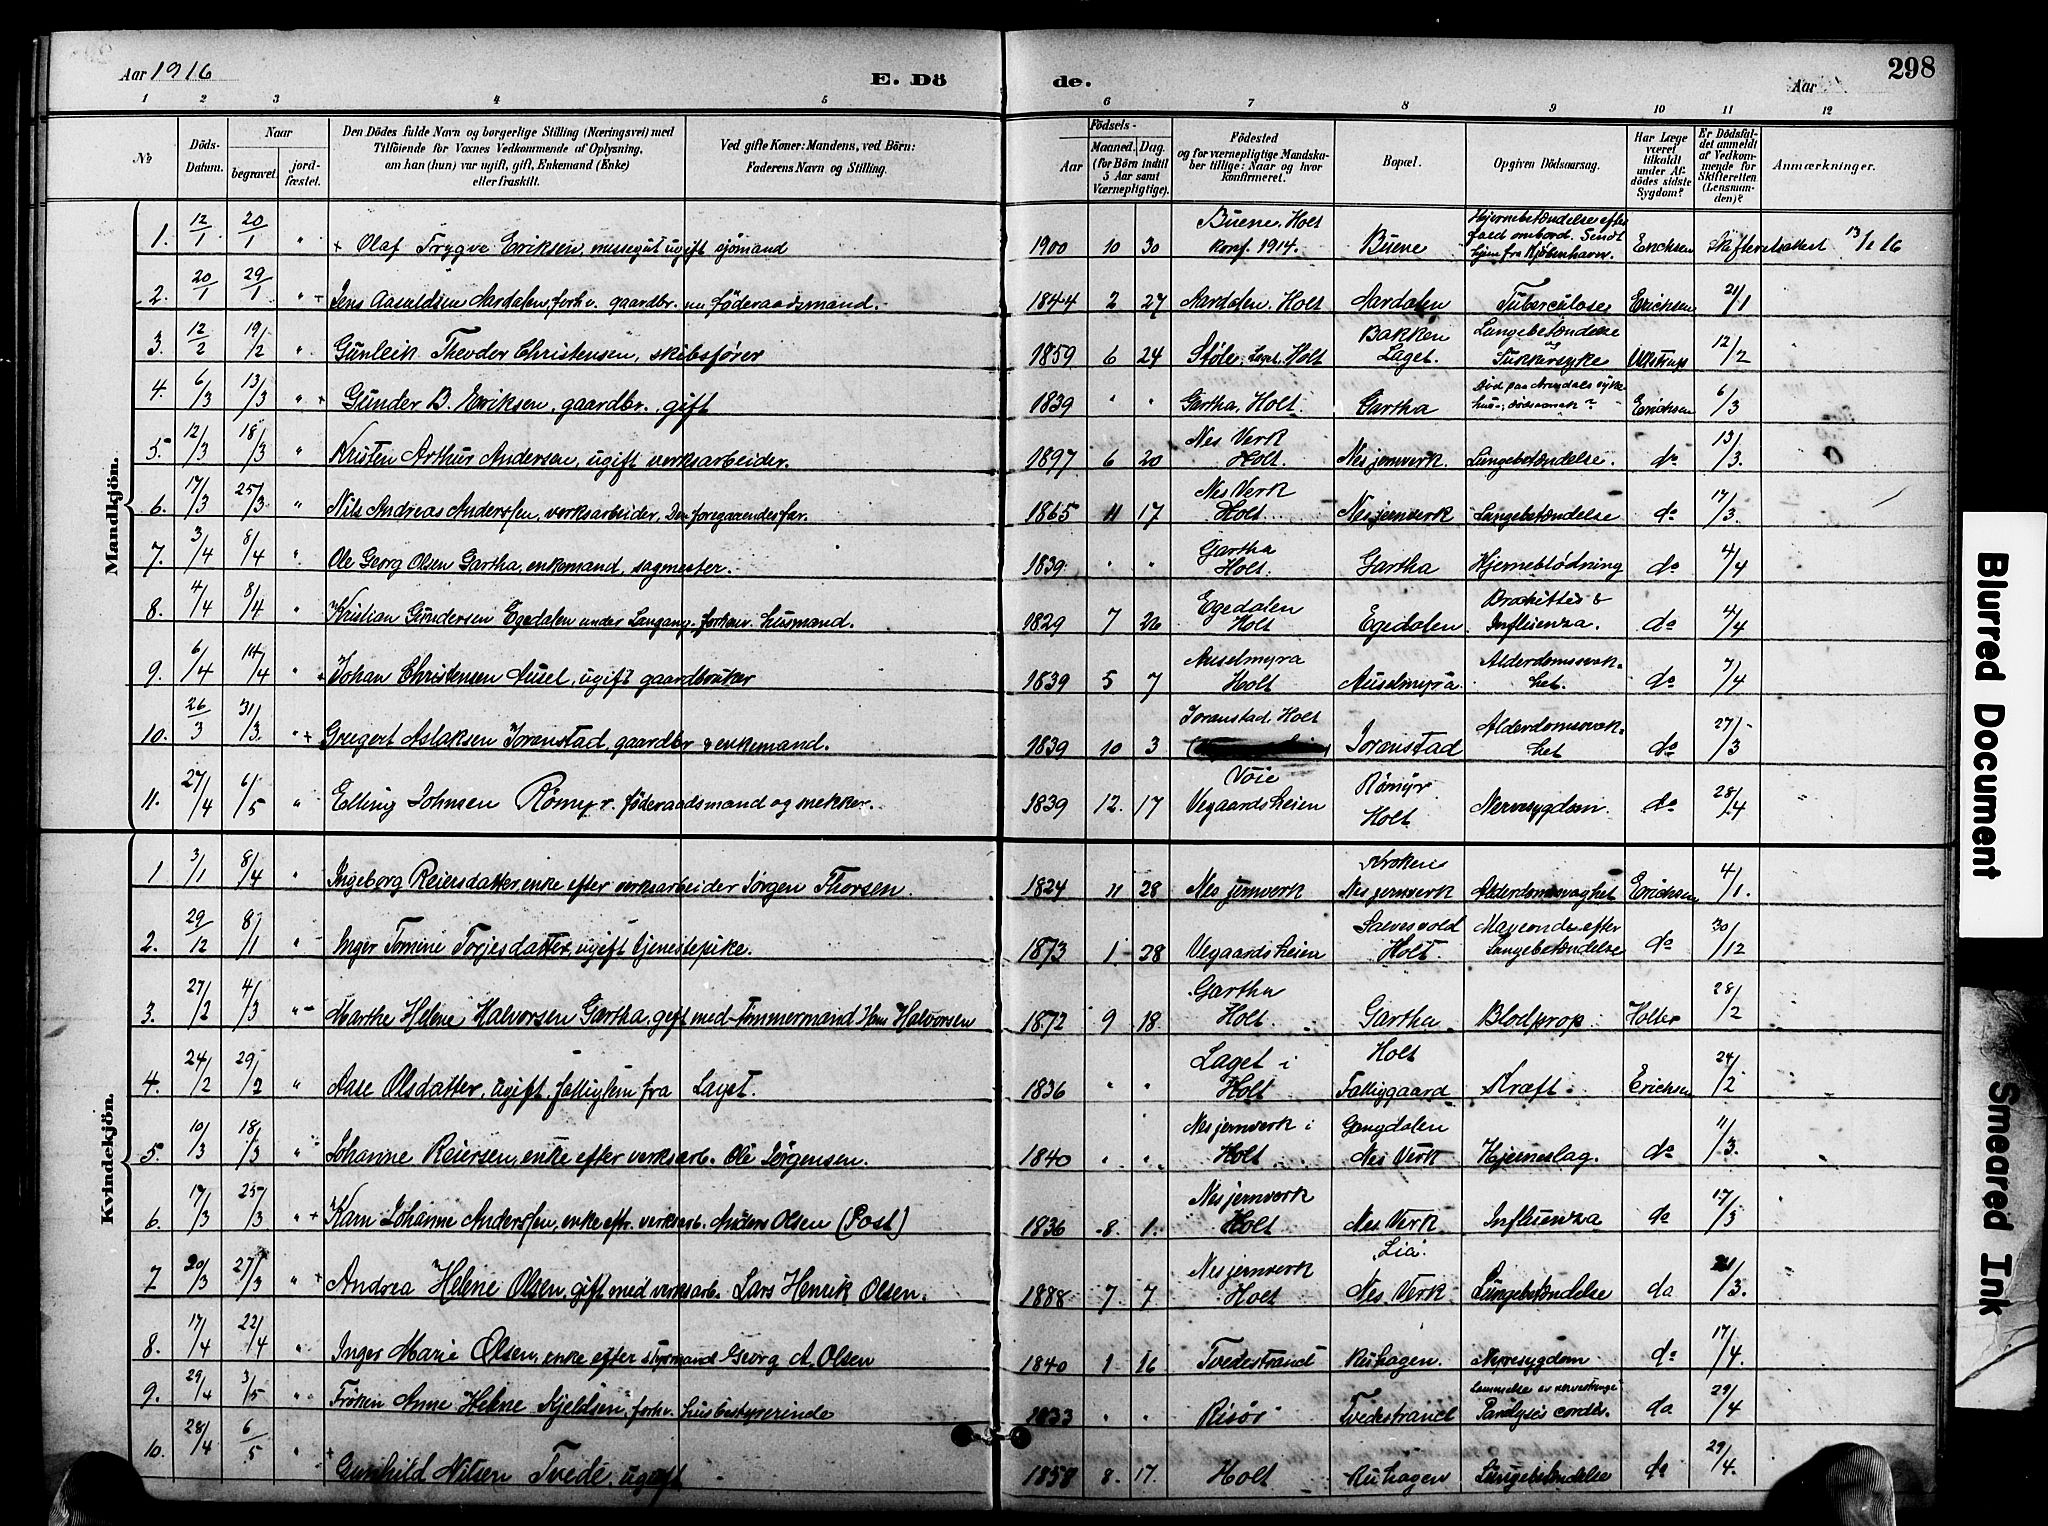 Aar 1916
E. Dö
de.
Aar
298
1 2 3 4 5 6 7 8 9 10 11 12
No
Döds-Datum.
Naar
begravet.
jord-fæstet.
Den Dödes fulde Navn og borgerlige Stilling (Næringsvei) med
Tilföiende for Voxnes Vedkommende af Oplysning,
om han (hun) var ugift, gift, Enkemand (Enke)
eller fraskilt.
Ved gifte Koner: Mandens, ved Börn:
Faderens Navn og Stilling.
Födsels-
Aar
Maaned. Dag.
(for Börn indtil
5 Aar samt
Værnepligtige).
Födested
og for værnepligtige Mandska-
ber tillige: Naar og hvor
konfirmeret.
Bopæl.
Opgiven Dödsaarsag.
Har Læge
været
tilkaldt
under Af-
dödes sidste
Sygdom?
Er Dödsfal-
det anmeldt
af Vedkom-
mende for
Skifteretten
(Lensman-
den)?
Anmærkninger.
Mandkjön.
1. 12/1 20/1 " + Olaf Trygve Eriksen, messegut ugift sjömand 1900 10 30 Buene, Holt Konf. 1914. Buene Hjernebetændelse efter fald ombord. Sendt hjem fra Kjøbenhavn. Erichsen Skifteretsattest 13/1 16
2. 20/1 29/1 " + Jens Aasuldsen Aardalen, forhv. gaardbr. nu föderaadsmand. 1844 2 27 Aardalen, Holt Aardalen Tuberculose Erichsen 21/1
3. 12/2 19/2 " Gunleik Theodor Christensen, skibsfører 1859 6 24 Støle, Laget, Holt Bakken Laget. Lungebetændelse og Sukkersyke 12/2
4. 6/3 13/3 " + Gunder B. Eriksen, gaardbr., gift 1839 " " Gartha, Holt. Gartha Død paa Arendals sykehus, dødsaarsak? Erichsen 6/3
5. 12/3 18/3 " Kristen Arthur Andersen, ugift verksarbeider. 1897 6 20 Nes Verk Holt. Nes jernverk. Lungebetændelse. do 13/3.
6. 17/3 25/3 " Nils Andreas Anderssen, verksarbeider. Den foregaaendes far. 1865 11 17 Nes Verk Holt. Nes jernverk Lungebetændelse do 17/3.
7. 3/4 8/4 " Ole Georg Olsen Gartha, enkemand, sagmester. 1839. " " Gartha Holt. Gartha Hjerneblødning do 4/4
8. 4/4 8/4 " Kristian Gundersen Egedalen under Langang. forhenv. husmand. 1829 7 26 Egedalen Holt Egedalen Influenza. do 4/4
9. 6/4 14/4 " + Johan Christensen Ausel, ugift gaardbruker 1839 5 7 Auselmyra Holt Auselmyra. Alderdomssvakhet. do 7/4
10. 26/3 31/3. " + Gregert Aslaksen Joranstad, gaardbr & enkemand. 1839 10 3 Joranstad, Holt Joranstad Alderdomssvakhet do 27/3
11. 27/4 6/5 " Elling Johnsen Rømyr. föderaadsmand og snekker. 1839 12. 17 Voie Vegaardsheien Rømyr Holt Nervesygdom. do 28/4 "
Kvindekjön.
1 3/1 8/4 " Ingeborg Reiersdatter, enke efter verksarbeider Jörgen Thorsen. 1824 11 28 Nes jernverk Kroken Nes jernverk Alderdomssvaghet Erichsen 4/1.
2. 29/12 8/1 " Inger Tomine Torjesdatter, ugift tjenestepike. 1873 1 28 Vegaardsheien Holt. Maveonde efter Lungebetændelse do 30/12
3. 27/2 4/3 " Marthe Helene Halvorsen Gartha, gift med tömmermand Halvorsen 1872 9 18 Gartha Holt. Gartha Blodprop Holter 28/2
4. 24/2 29/2 " Aase Olsdatter, ugift, fattiglem fra Laget. 1836 " " Laget i Holt Holt Fattiggaard Kræft. Erichsen 24/2
5. 10/3 18/3 " Johanne Reiersen, enke efter verksarb. Ole Jörgensen. 1840 " " Nes jernverk i Holt Gangdalen Nes Verk Hjerneslag. do 11/3.
6. 17/3 25/3 " + Karn Johanne Anderssen, enke eftr. verksarb. Anders Olsen (Post) 1836 8. 1. Nes jernverk Holt Nes Verk Influenza do 17/3 "
7 20/3 27/3 " + Andrea Helene Olsen, gift med verksarb. Lars Henrik Olsen. 1888 7 7 Nes jernverk Holt Lia. Nes Verk Lungebetændelse do 21/3.
8. 17/4 22/4 " Inger Marie Olsen, enke efter styrmand Georg A. Olsen 1840 1 16 Tvedestrand Ruhagen. do 17/4.
9. 29/4 3/5 " Frøken Anne Helene Kjeldsen, forhv. husbestyrerinde 1833 " " Risör Tvedestrand Paralysis cordis. do 29/4
10. 28/4 6/5 " + Gunhild Nilsen Tvede, ugift 1858 8. 17. Holt Ruhagen Lungebetændelse do 29/4.
Blurred Document
Smeared Ink